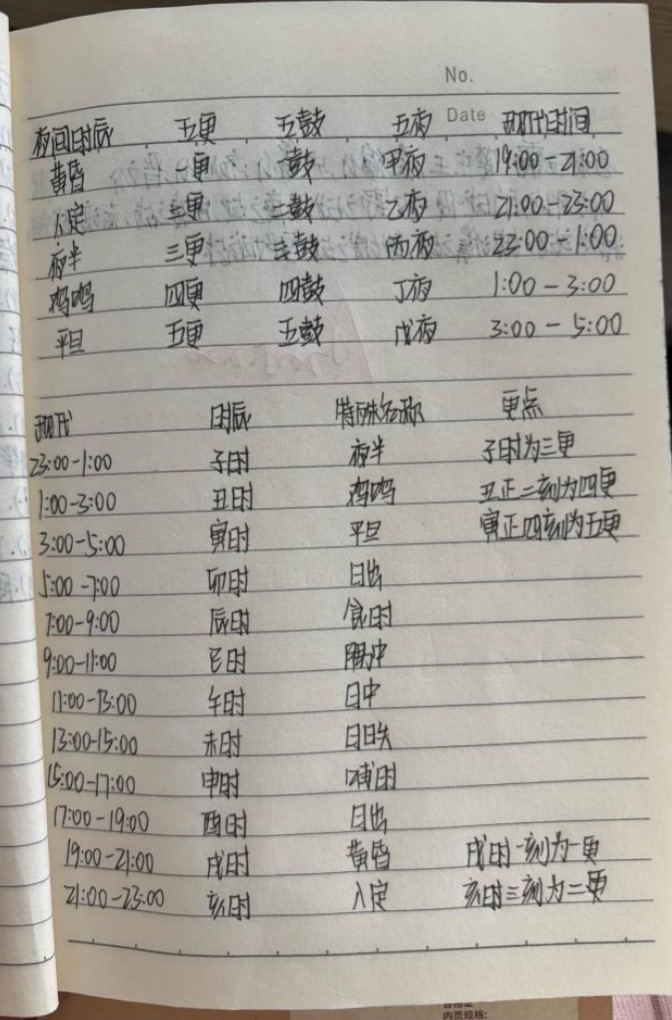 No.
Date
夜间时辰 五更 五鼓 五夜 现代时间
黄昏 一更 一鼓 甲夜 19:00-21:00
人定 二更 二鼓 乙夜 21:00-23:00
夜半 三更 三鼓 丙夜 23:00-1:00
鸡鸣 四更 四鼓 丁夜 1:00-3:00
平旦 五更 五鼓 戊夜 3:00-5:00
现代 时辰 特殊名称 更点
23:00-1:00 子时 夜半 子时为三更
1:00-3:00 丑时 鸡鸣 丑正二刻为四更
3:00-5:00 寅时 平旦 寅正四刻为五更
5:00-7:00 卯时 日出
7:00-9:00 辰时 食时
9:00-11:00 巳时 隅中
11:00-13:00 午时 日中
13:00-15:00 未时 日昳
15:00-17:00 申时 哺时
17:00-19:00 酉时 日出
19:00-21:00 戌时 黄昏 戌时一刻为一更
21:00-23:00 亥时 人定 亥时三刻为二更
内页规格: